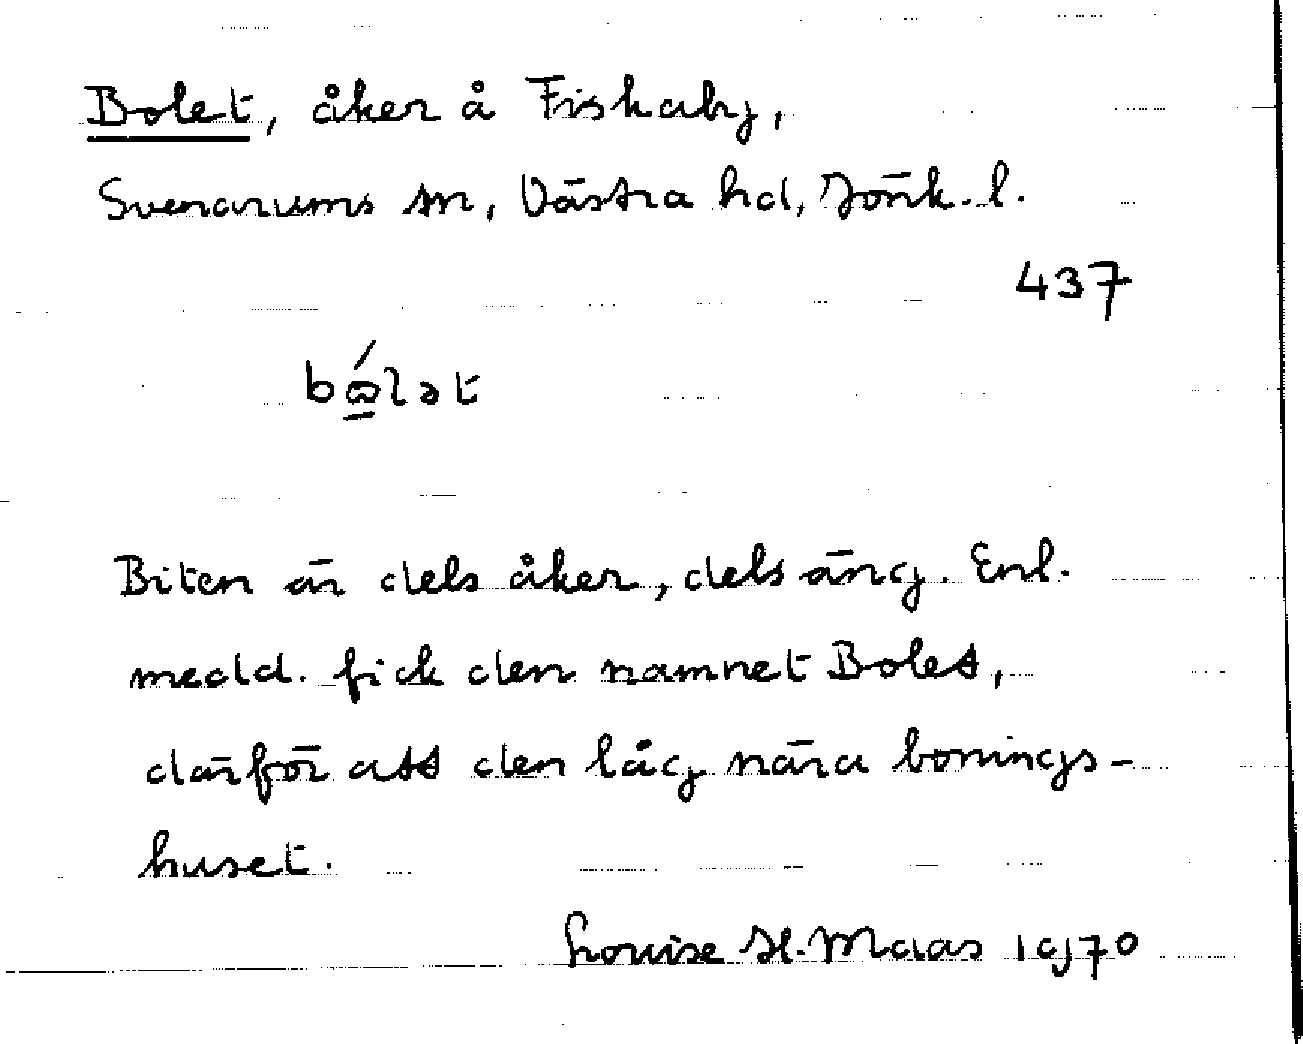 Bolet, åker å Fiskaby,
Svenarums sn, Västra hd, Jönk. l.
437
bώlət
Biten är dels åker, dels äng. Enl.
medd. fick den namnet Bolet,
därför att den låg nära bonings-
huset.
Louise H. Maas 1970